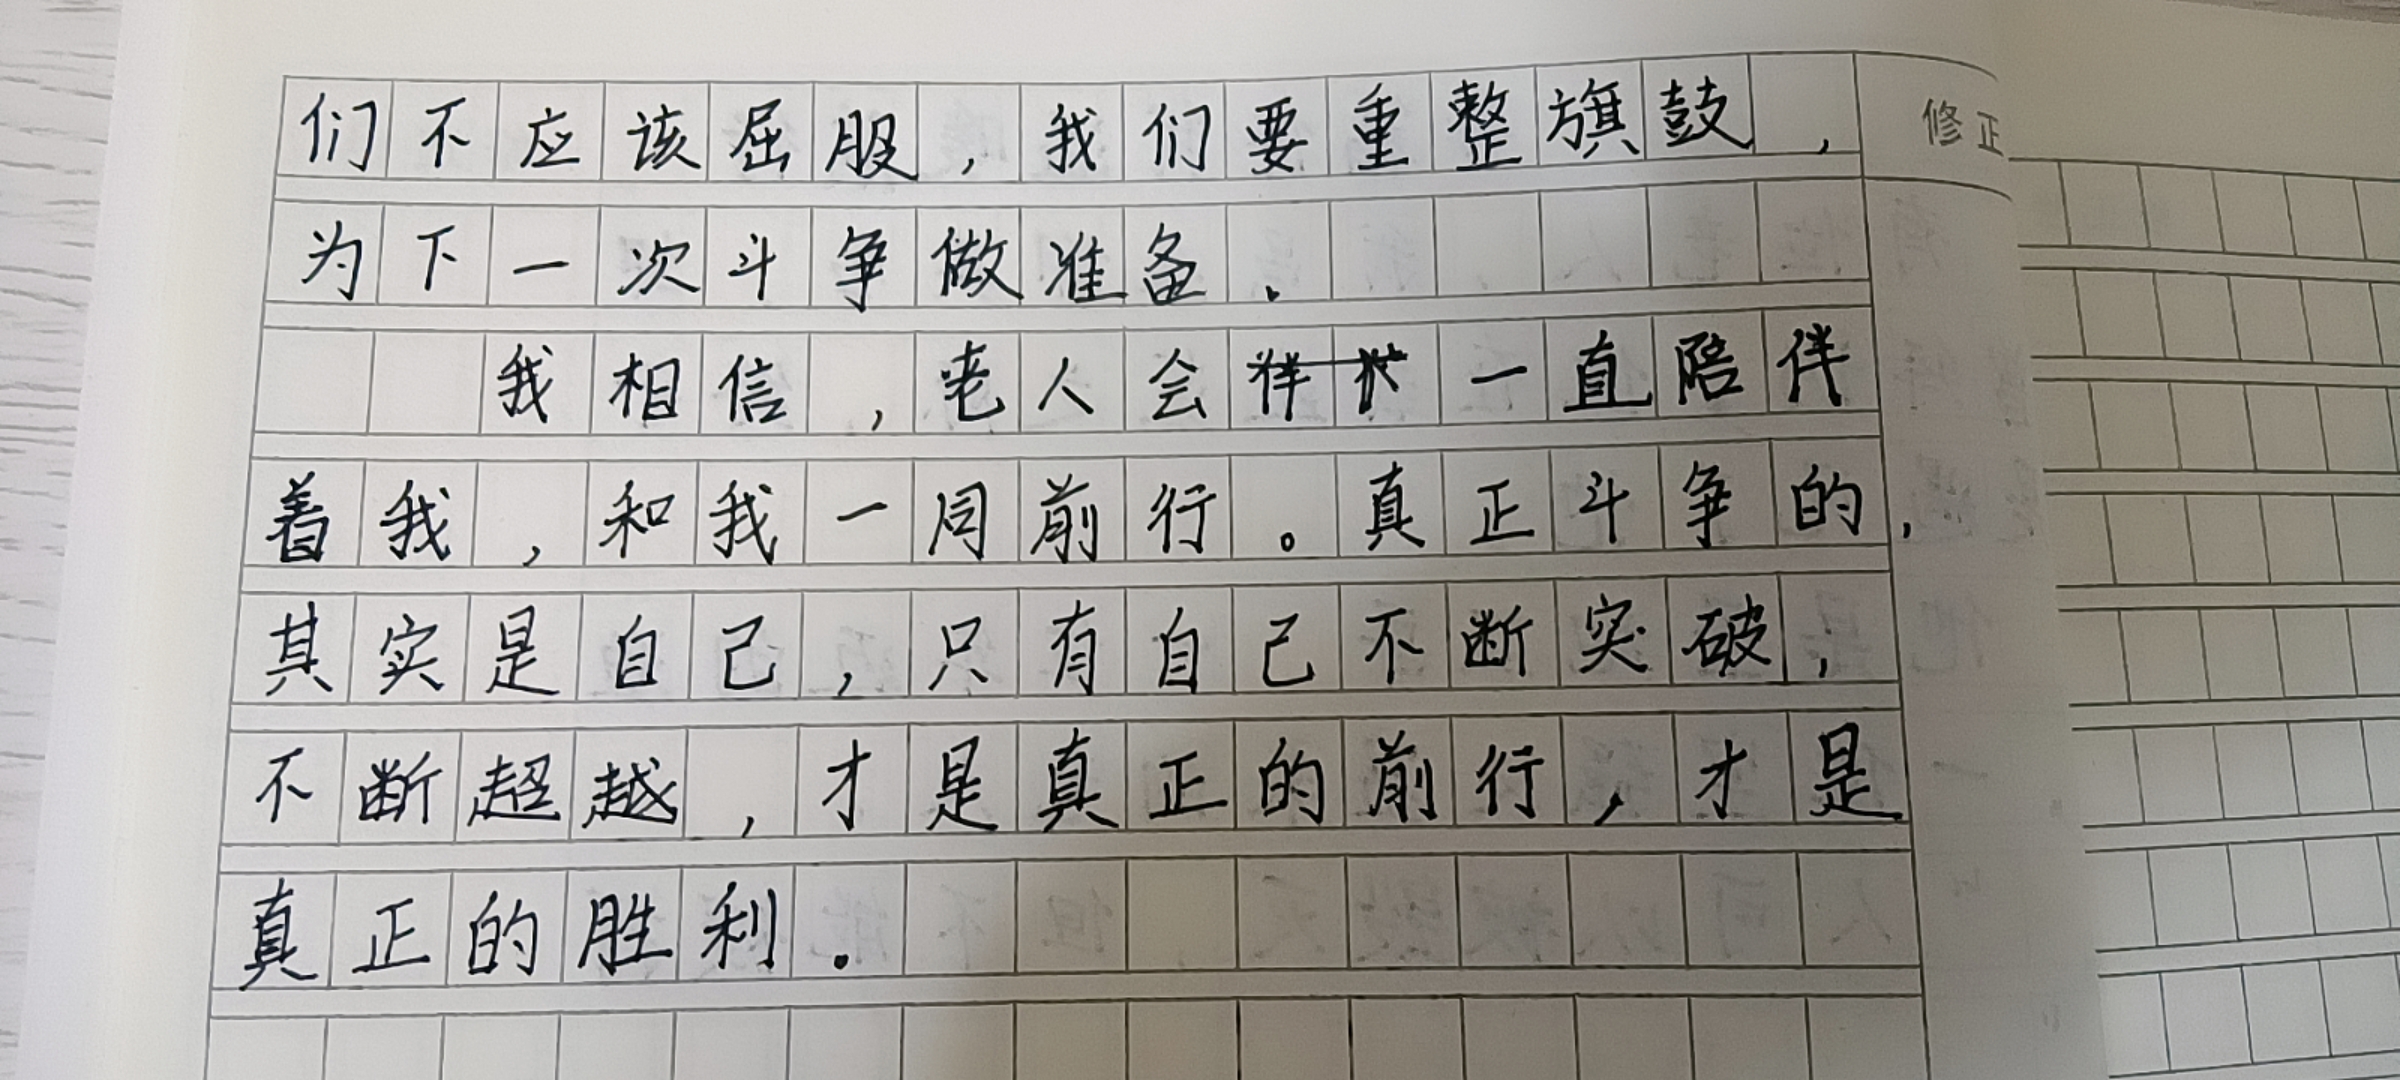 们不应该屈服，我们要重整旗鼓，
修正
为下一次斗争做准备.
我相信，老人会一直陪伴
着我，和我一同前行。真正斗争的，
其实是自己，只有自己不断突破，
不断超越，才是真正的前行，才是
真正的胜利.